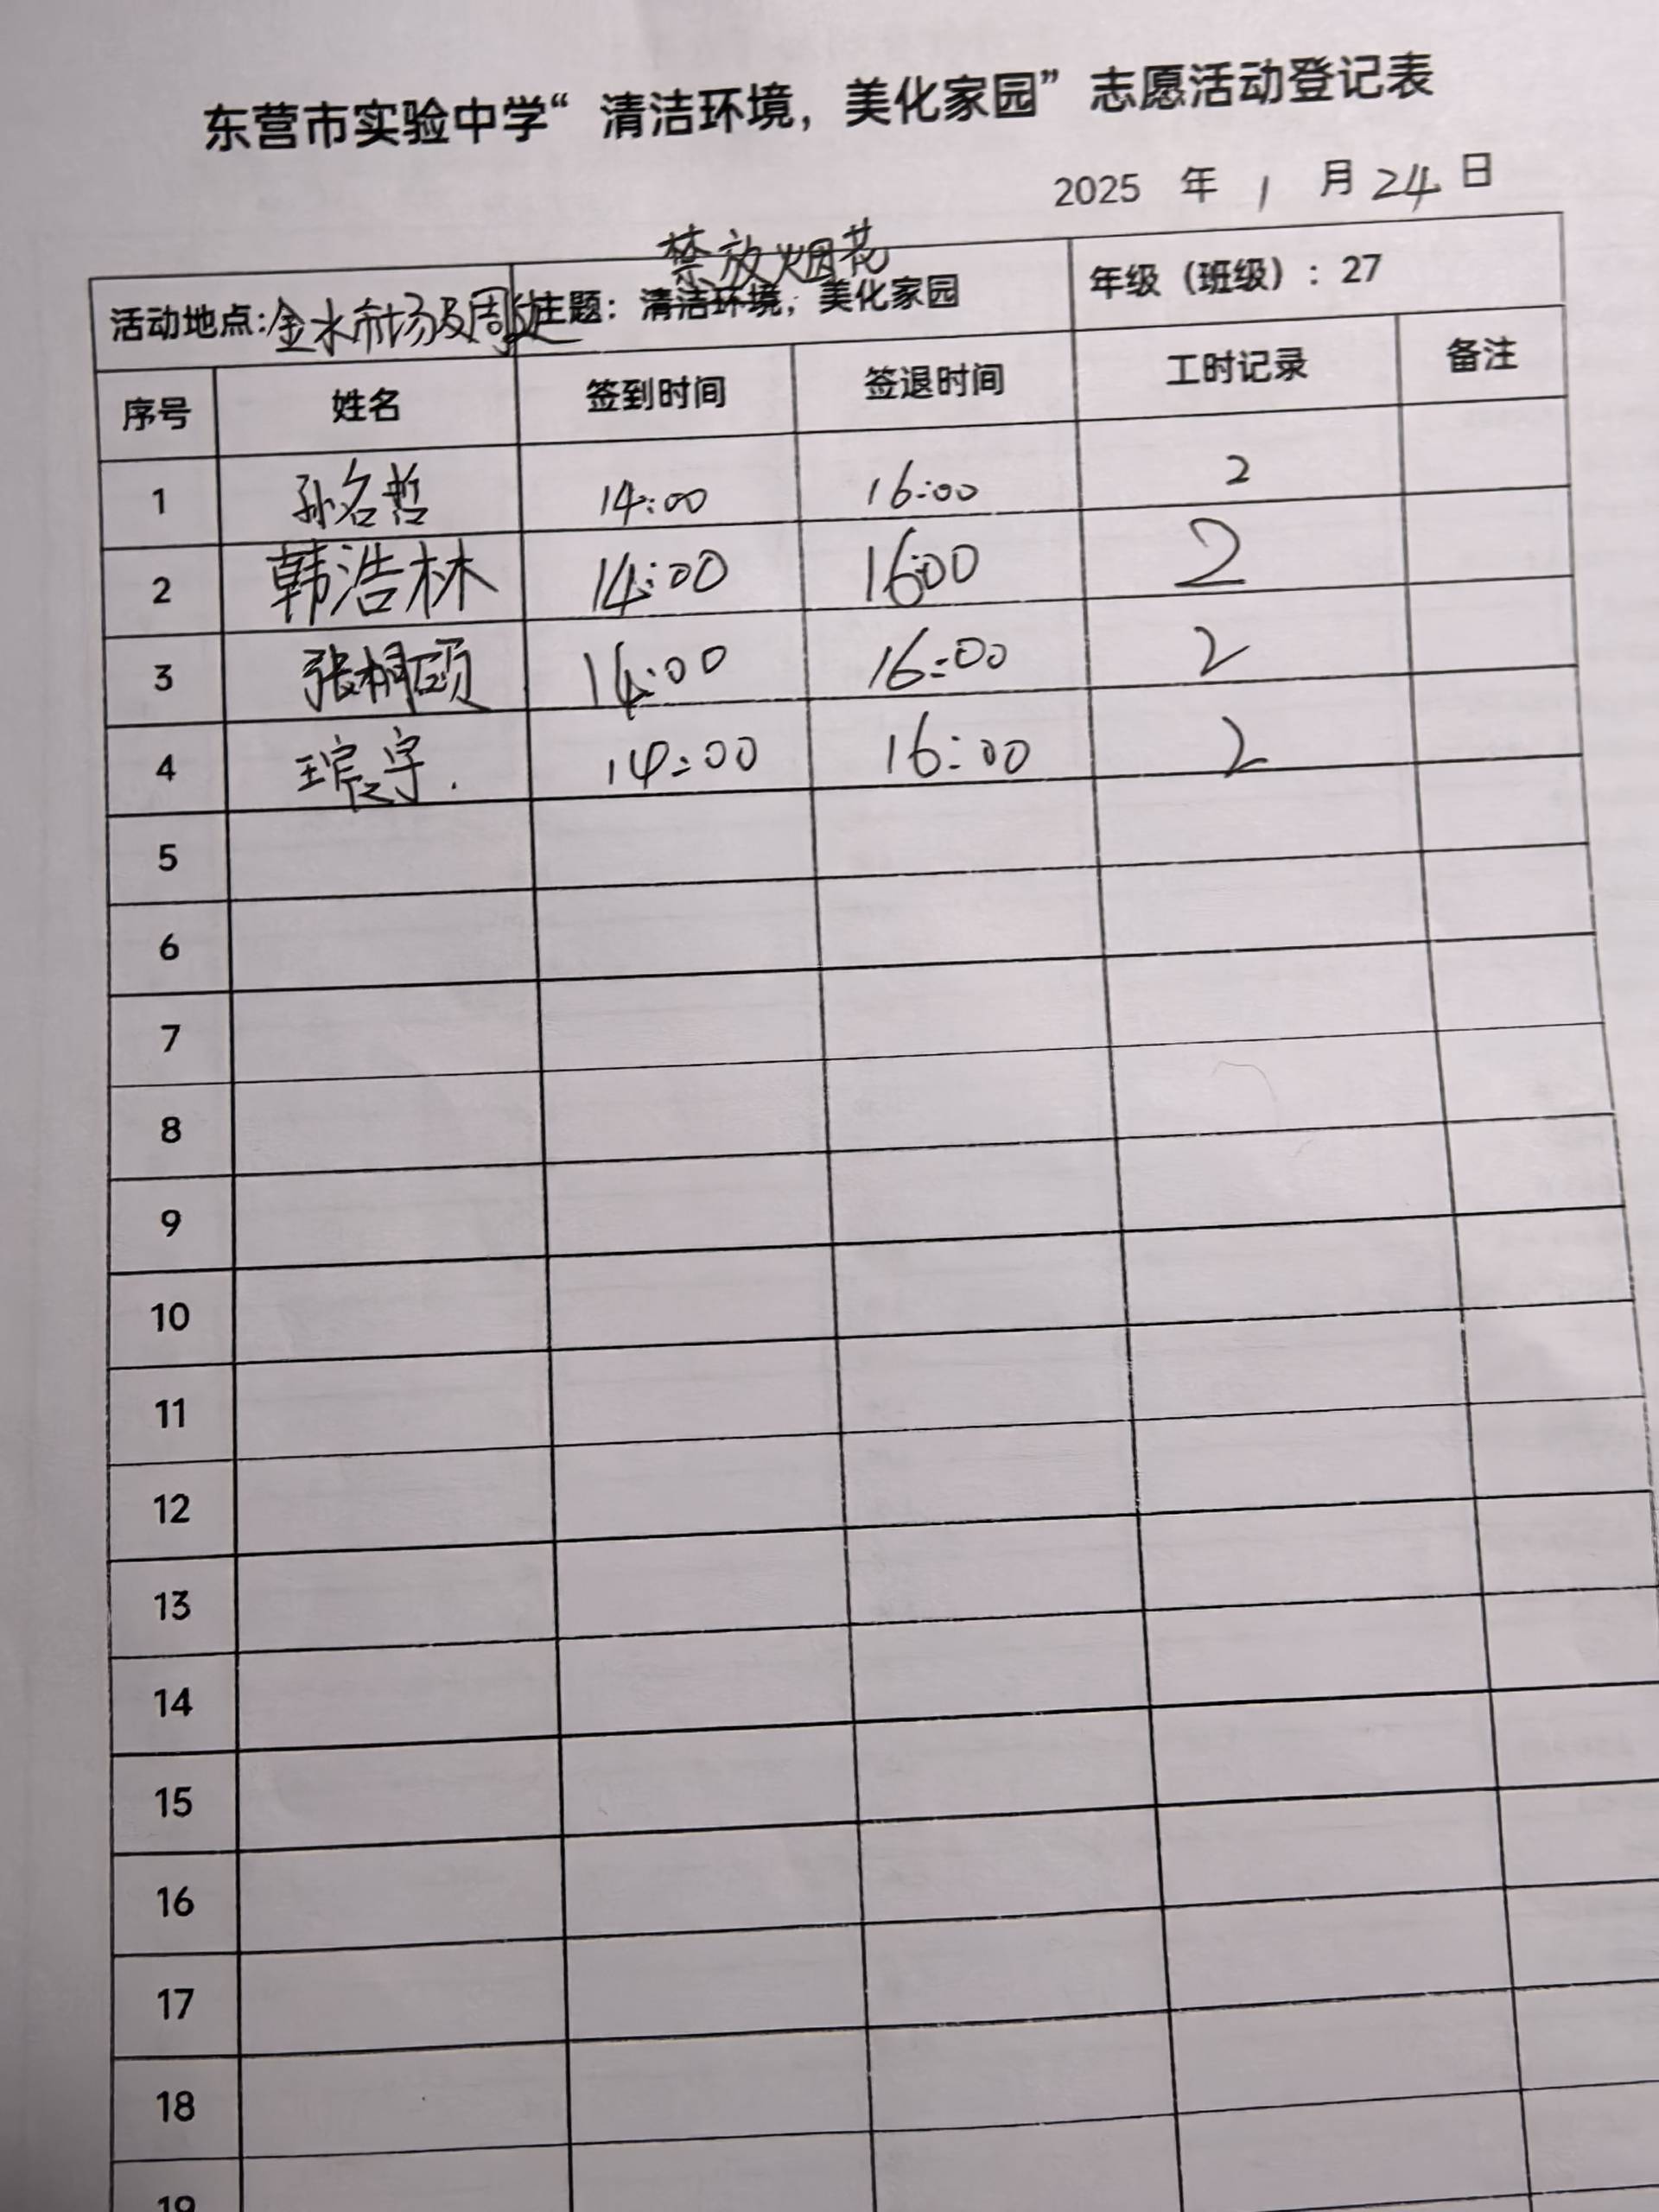 东营市实验中学“清洁环境，美化家园”志愿活动登记表
2025 年 1 月 24 日
禁放烟花
活动地点:金水市场及周边 主题：清洁环境，美化家园 年级（班级）：27
序号 姓名 签到时间 签退时间 工时记录 备注
1 孙名哲 14:00 16:00 2
2 韩浩林 14:00 16:00 2
3 张桐硕 14:00 16:00 2
4 14:00 16:00 2
5
6
7
8
9
10
11
12
13
14
15
16
17
18
19